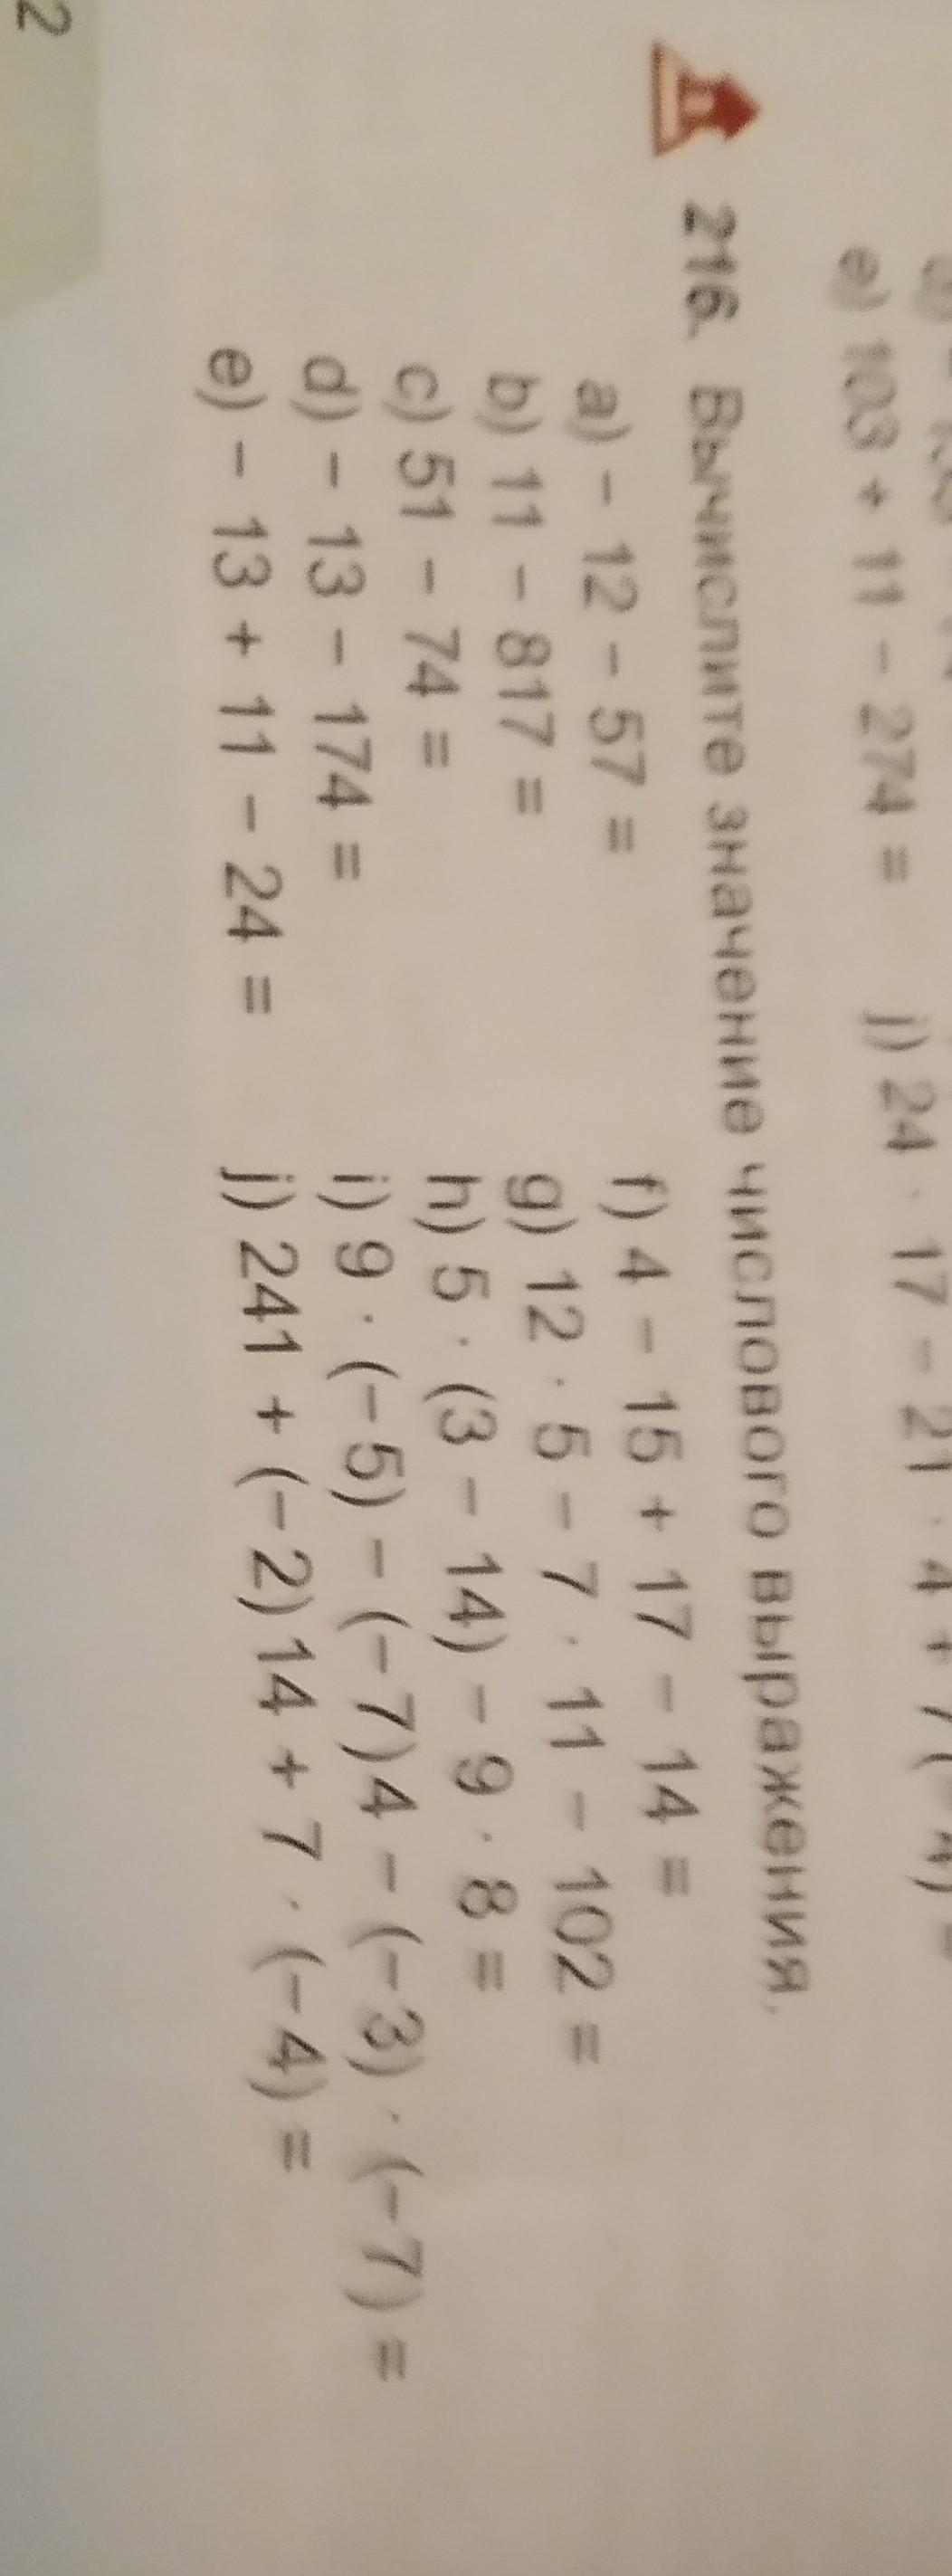 e) 103 + 11 – 274 =
j) 24 · 17 – 21 · 4 + 7(– 4) =
216. Вычислите значение числового выражения.
a) – 12 – 57 =
b) 11 – 817 =
c) 51 – 74 =
d) – 13 – 174 =
e) – 13 + 11 – 24 =
f) 4 – 15 + 17 – 14 =
g) 12 · 5 – 7 · 11 – 102 =
h) 5 · (3 – 14) – 9 · 8 =
i) 9 · (– 5) – (– 7)4 – (– 3) · (– 7) =
j) 241 + (– 2)14 + 7 · (– 4) =
2